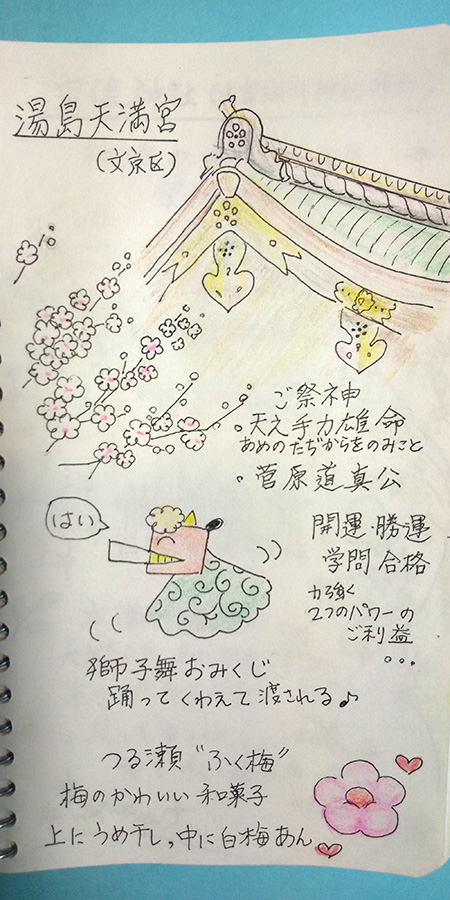 湯島天満宮
(文京区)
ご祭神
・天之手力雄命
あめのたぢからをのみこと
・菅原道真公
はい
開運・勝運
学問 合格
力強く
2つのパワーの
ご利益
...
獅子舞おみくじ
踊ってくわえて渡される♪
つる瀬 "ふく梅"
梅のかわいい和菓子
上にうめ干し、中に白梅あん